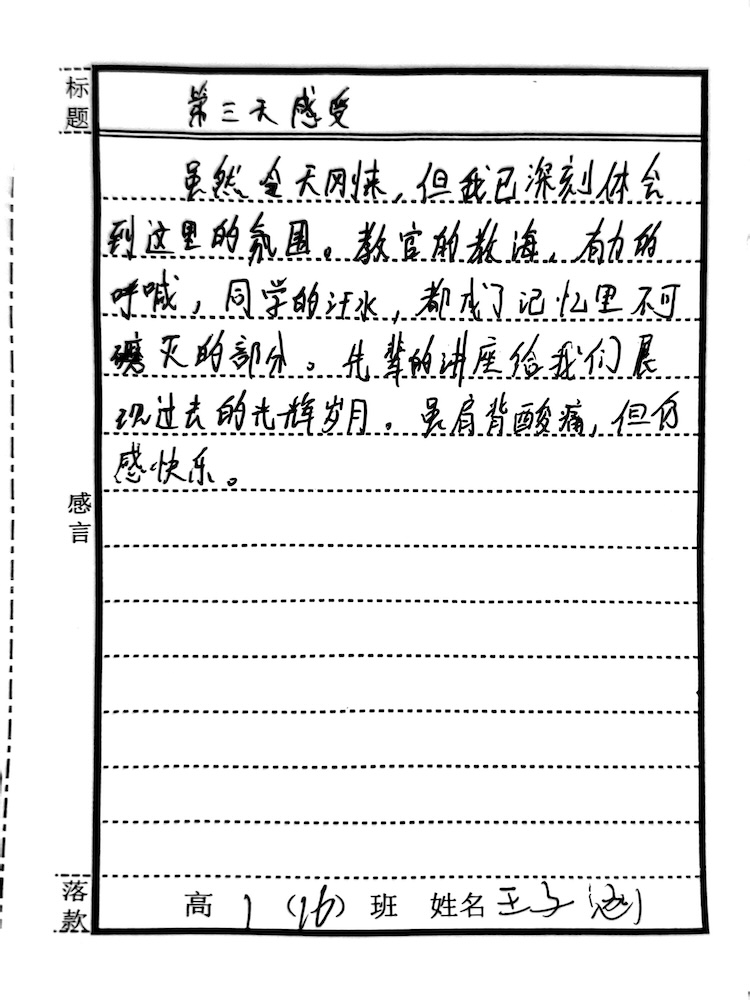 标题
第三天感受
虽然今天刚来，但我已深刻体会
到这里的氛围。教官的教诲，有力的
呼喊，同学的汗水，都成了记忆里不可
磨灭的部分。先辈的讲座给我们展
现过去的光辉岁月。虽肩背酸痛，但仍
感快乐。
感言
落款 高 1 (16) 班 姓名 王子涵